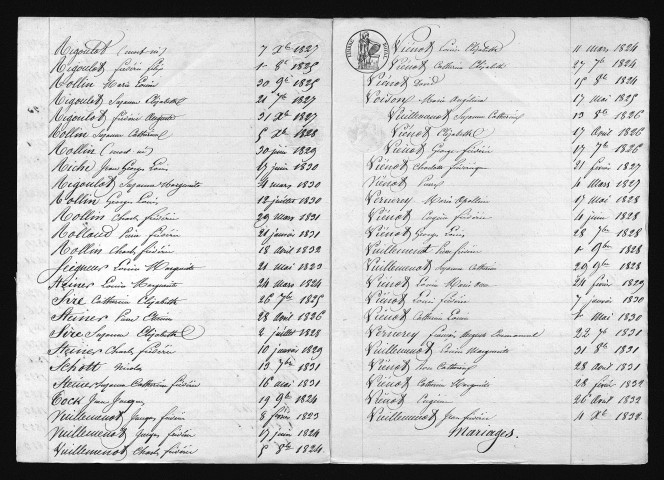 Rigoulot (mort-né) 7 Xbre 1827
Rigoulot frédéric fils 1er 8bre 1825
Rollin Marie Louise 30 9bre 1825
Rigoulot Suzanne Elizabeth 21 7bre 1827
Rigoulot frédéric Auguste 31 Xbre 1827
Rollin Suzanne Catherine 5 Xbre 1828
Rollin (mort-né) 30 juin 1829
Riche Jean George Louis 6 juin 1830
Rigoulot Suzanne Marguerite 4 mars 1830
Rollin George Louis 12 juillet 1830
Rollin Charles frédéric 29 mars 1831
Rolland Pierre frédéric 21 janvier 1831
Rollin Charles frédéric 18 avril 1832
Seigneur Louise Marguerite 21 mai 1823
Steiner Louise Marguerite 24 mars 1824
Sire Catherine Elizabeth 26 7bre 1825
Steiner Pierre Etienne 28 avril 1826
Sire Suzanne Elizabeth 2 juillet 1828
Steiner Charles frédéric 10 janvier 1829
Schott Nicolas 13 7bre 1831
Steiner Suzanne Catherine frédéric 16 mai 1831
Tock Jean Jacques 19 9bre 1824
Vuillemenot Jacques frédéric 8 février 1823
Vuillemenot Jacques frédéric 17 juin 1824
Vuillemenot Charles frédéric 5 8bre 1824
Viénot Louise Elizabeth 11 mars 1824
Viénot Catherine Elizabeth 27 7bre 1824
Viénot David 15 8bre 1824
Voisin Marie Angélina 17 mai 1825
Vuillemenot Suzanne Catherine 13 8bre 1826
Viénot Elizabeth 17 avril 1826
Viénot George frédéric 17 7bre 1826
Viénot Charlotte frédérique 21 février 1827
Viénot Pierre 4 mars 1827
Vernerey Marie Apolline 17 mai 1828
Viénot Eugène frédéric 4 juin 1828
Viénot George Louis 28 7bre 1828
Vuillemenot Pierre frédéric 1er 9bre 1828
Vuillemenot Suzanne Catherine 29 9bre 1828
Viénot Louise Marie 24 février 1829
Viénot Louis frédéric 7 janvier 1830
Viénot Catherine Louise 1er mai 1830
Vernerey François August Emmanuel 22 7bre 1831
Vuillemenot Louise Marguerite 31 8bre 1831
Viénot Catherine 28 avril 1831
Viénot Catherine Marguerite 28 février 1832
Viénot Eugène 26 avril 1832
Vuillemenot Jean frédéric 4 Xbre 1832
Mariages.